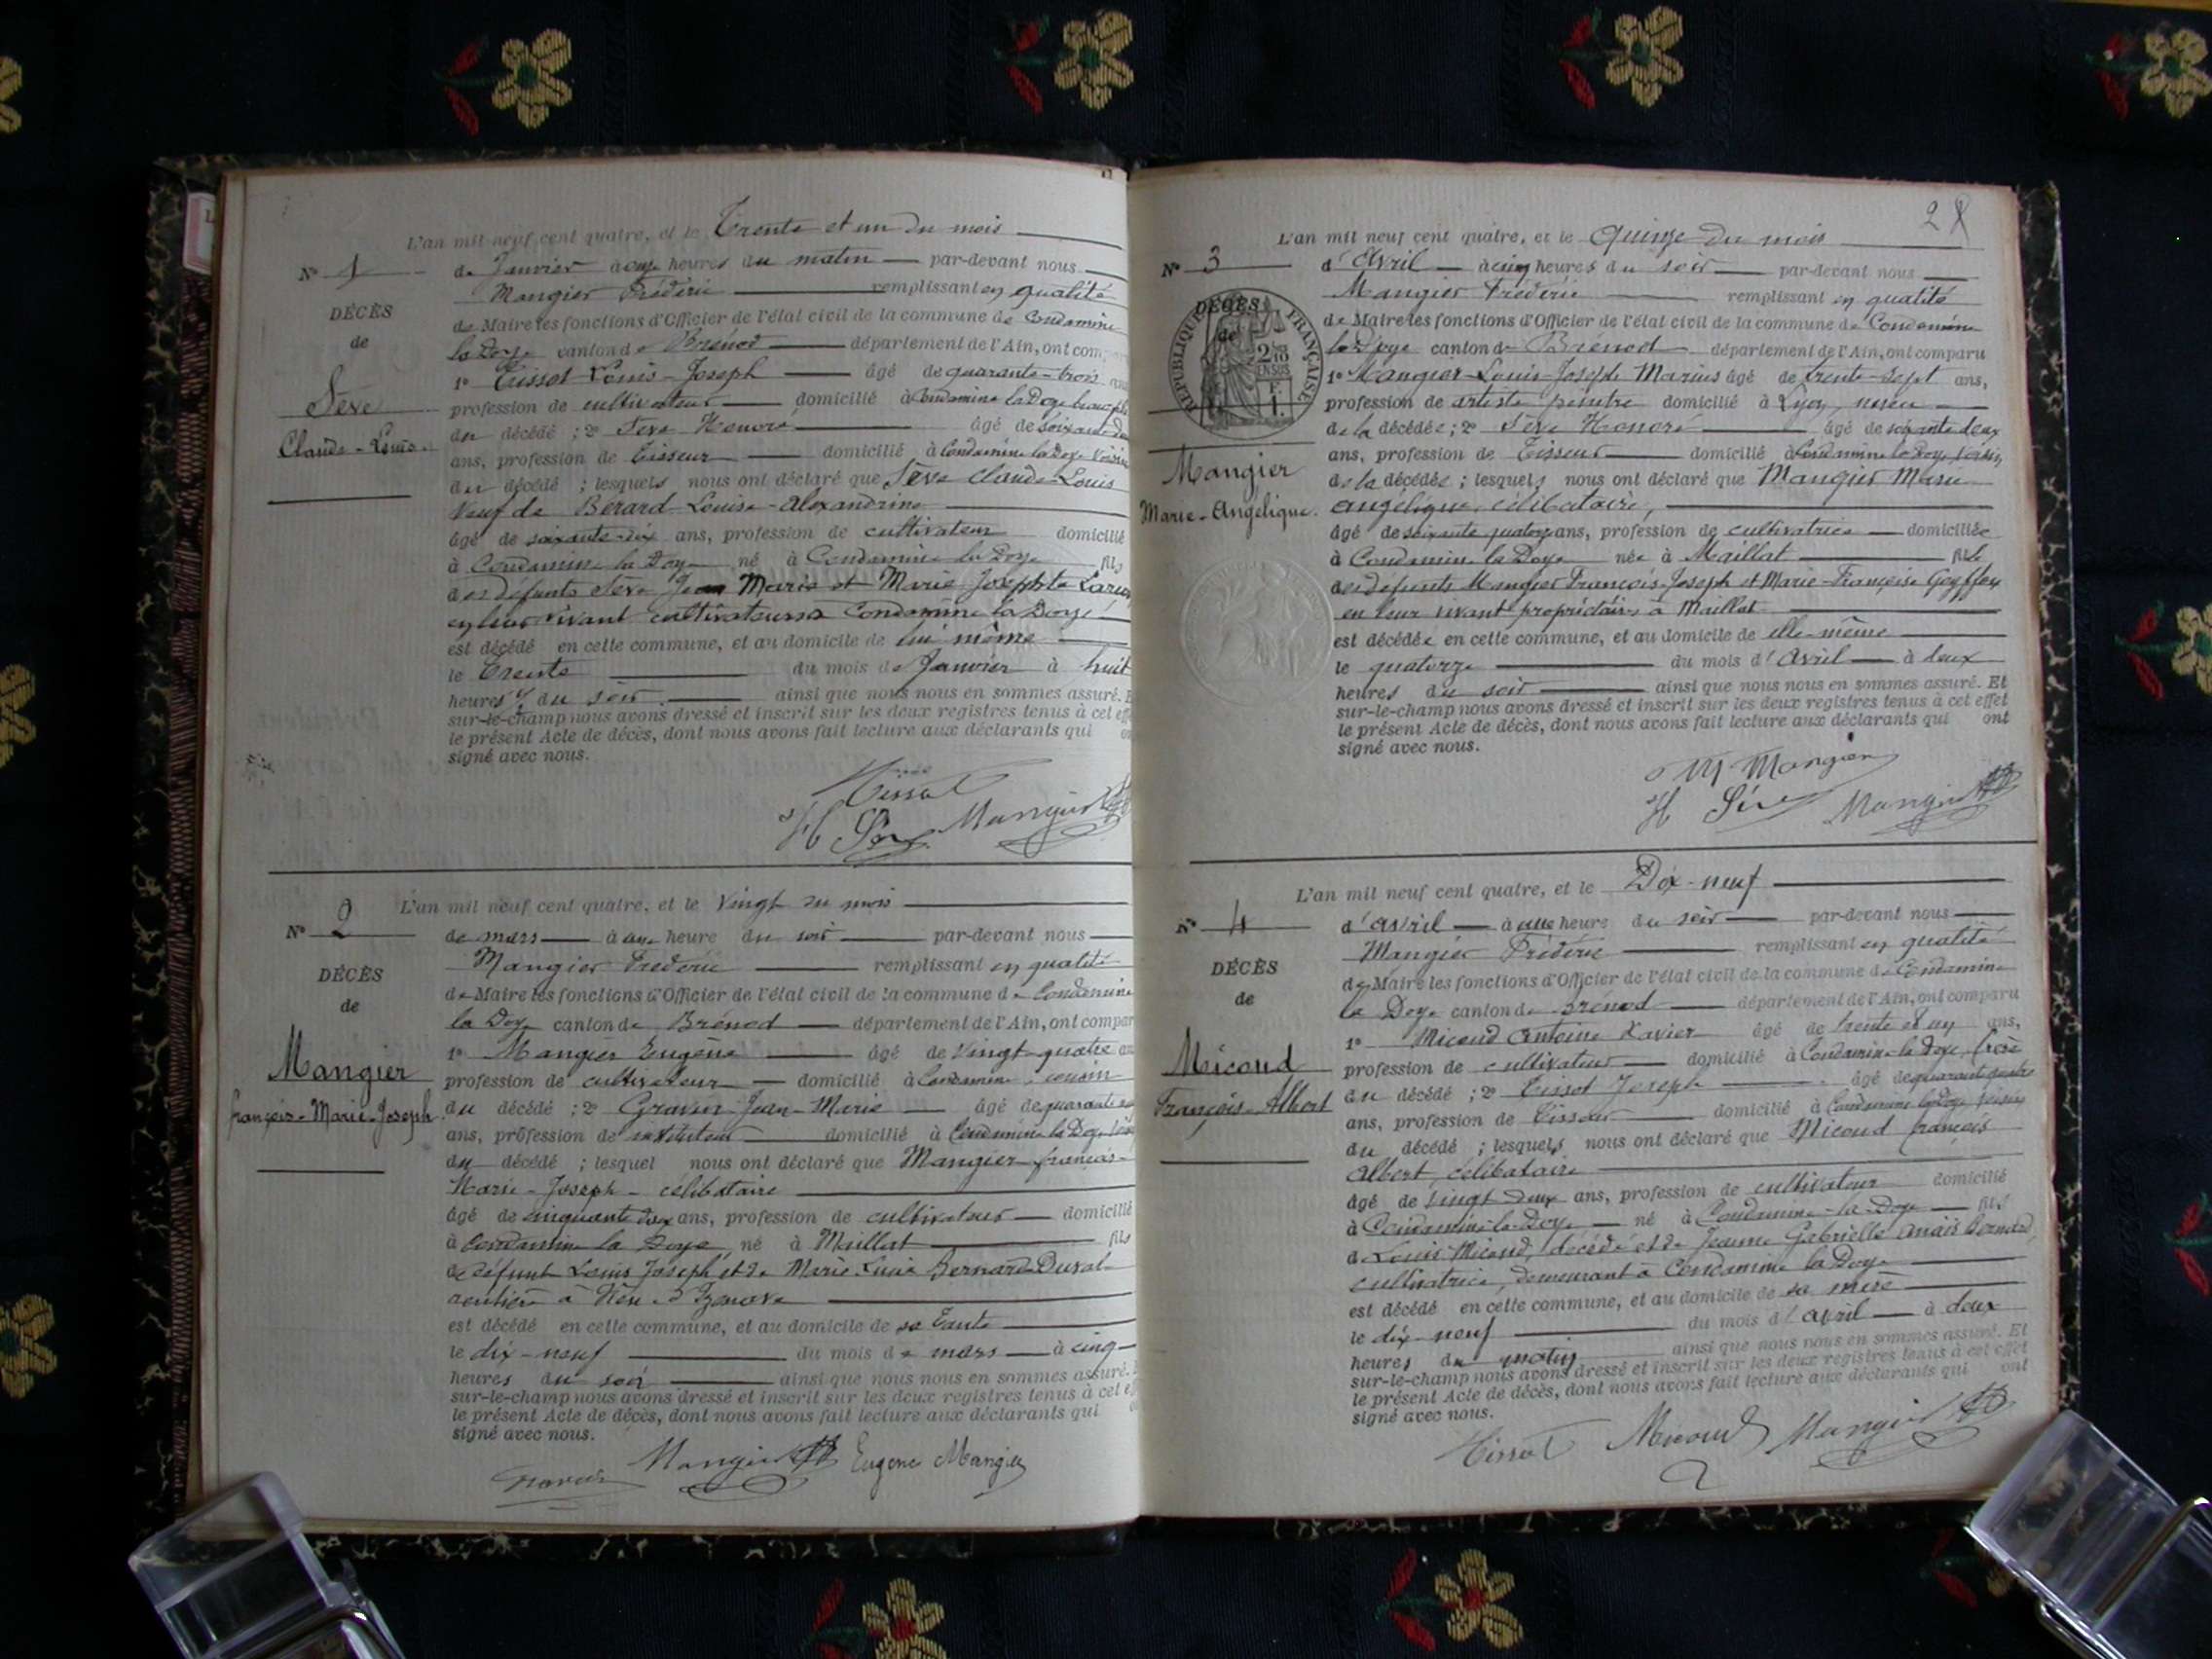 L'an mil neuf cent quatre, et le Trente et un du mois
N° 1
de Janvier à onze heures du matin par-devant nous
Mangier Frédéric remplissant en qualité
de Maire les fonctions d'Officier de l'état civil de la commune de Condamine
la Doye canton de Brénod département de l'Ain, ont compa
1° Tissot Louis-Joseph âgé de quarante-trois
profession de cultivateur domicilié à Condamine la Doye
du décédé ; 2° Sève Honoré âgé de soixante
ans, profession de Tisseur domicilié à Condamine la Doye Voisin
du décédé ; lesquels nous ont déclaré que Sève Claude-Louis
Veuf de Bérard Louise-Alexandrine
âgé de soixante-dix ans, profession de cultivateur domicilié
à Condamine la Doye né à Condamine la Doye fils
des défunts Sève Jean Marie et Marie Josephte
en leur vivant cultivateurs à Condamine la Doye
est décédé en cette commune, et au domicile de lui même
le Trente du mois de Janvier à huit
heures ½ du soir ainsi que nous nous en sommes assuré. E
sur-le-champ nous avons dressé et inscrit sur les deux registres tenus à cet eff
le présent Acte de décès, dont nous avons fait lecture aux déclarants qui
signé avec nous.
DÉCÈS
de
Sève
Claude-Louis
Tissot
H Sève Mangier
L'an mil neuf cent quatre, et le Vingt du mois
N° 2
de mars à une heure du soir par-devant nous
Mangier Frédéric remplissant en qualité
de Maire les fonctions d'Officier de l'état civil de la commune de Condamine
la Doye canton de Brénod département de l'Ain, ont compar
1° Mangier Eugène âgé de Vingt-quatre
profession de cultivateur domicilié à Condamine, cousin
du décédé ; 2° Jean-Marie âgé de quarante
ans, profession de instituteur domicilié à Condamine la Doye
du décédé ; lesquel nous ont déclaré que Mangier françois-
Marie-Joseph - célibataire
âgé de cinquante deux ans, profession de cultivateur domicilié
à Condamine la Doye né à Maillat fils
de défunt Louis Joseph et de Marie Bernard Duval
rentière à d'Izenave
est décédé en cette commune, et au domicile de sa Tante
le dix-neuf du mois de mars à cinq
heures du soir ainsi que nous nous en sommes assuré.
sur-le-champ nous avons dressé et inscrit sur les deux registres tenus à cet ef
le présent Acte de décès, dont nous avons fait lecture aux déclarants qui
signé avec nous.
DÉCÈS
de
Mangier
françois-Marie-Joseph
Mangier Eugene Mangier
28
L'an mil neuf cent quatre, et le Quinze du mois
N° 3
d'Avril à cinq heures du soir par-devant nous
Mangier Frédéric remplissant en qualité
de Maire les fonctions d'Officier de l'état civil de la commune de Condamine
la Doye canton de Brenod département de l'Ain, ont comparu
1° Mangier Louis-Joseph Marius âgé de trente-sept ans,
profession de artiste peintre domicilié à Lyon, neveu
de la décédée ; 2° Sève Honoré âgé de soixante deux
ans, profession de Tisseur domicilié à Condamine la Doye, Voisin
de la décédée ; lesquels nous ont déclaré que Mangier Marie
angélique, célibataire,
âgé de soixante quatorze ans, profession de cultivatrice domiciliée
à Condamine la Doye née à Maillat fille
des défunts Mangier François-Joseph et Marie-Françoise
en leur vivant propriétaires à Maillat
est décédée en cette commune, et au domicile de elle-même
le quatorze du mois d'Avril à deux
heures du soir ainsi que nous nous en sommes assuré. Et
sur-le-champ nous avons dressé et inscrit sur les deux registres tenus à cet effet
le présent Acte de décès, dont nous avons fait lecture aux déclarants qui ont
signé avec nous.
DÉCÈS
de
RÉPUBLIQUE FRANÇAISE
2/10 EN SUS
F.
1.
Mangier
Marie-Angélique.
M Mangier
H Sève Mangier
L'an mil neuf cent quatre, et le Dix-neuf
N° 4
d'avril à une heure du soir par-devant nous
Mangier Frédéric remplissant en qualité
de Maire les fonctions d'Officier de l'état civil de la commune de Condamine
la Doye canton de Brénod département de l'Ain, ont comparu
1° Micoud Antoine Xavier âgé de trente et un ans,
profession de cultivateur domicilié à Condamine la Doye, frère
du décédé ; 2° Tissot Joseph âgé de quarante
ans, profession de Tisseur domicilié à Condamine la Doye Voisin
du décédé ; lesquels nous ont déclaré que Micoud françois
Albert, célibataire
âgé de vingt deux ans, profession de cultivateur domicilié
à Condamine-la-Doye né à Condamine-la-Doye fils
de Louis Micoud, décédé et de Jeanne Gabrielle Anaïs Bernard,
cultivatrice, demeurant à Condamine la Doye
est décédé en cette commune, et au domicile de sa mère
le dix-neuf du mois d'avril à deux
heures du matin ainsi que nous nous en sommes assuré. Et
sur-le-champ nous avons dressé et inscrit sur les deux registres tenus à cet effet
le présent Acte de décès, dont nous avons fait lecture aux déclarants qui ont
signé avec nous.
DÉCÈS
de
Micoud
François-Albert
Tissot Micoud Mangier